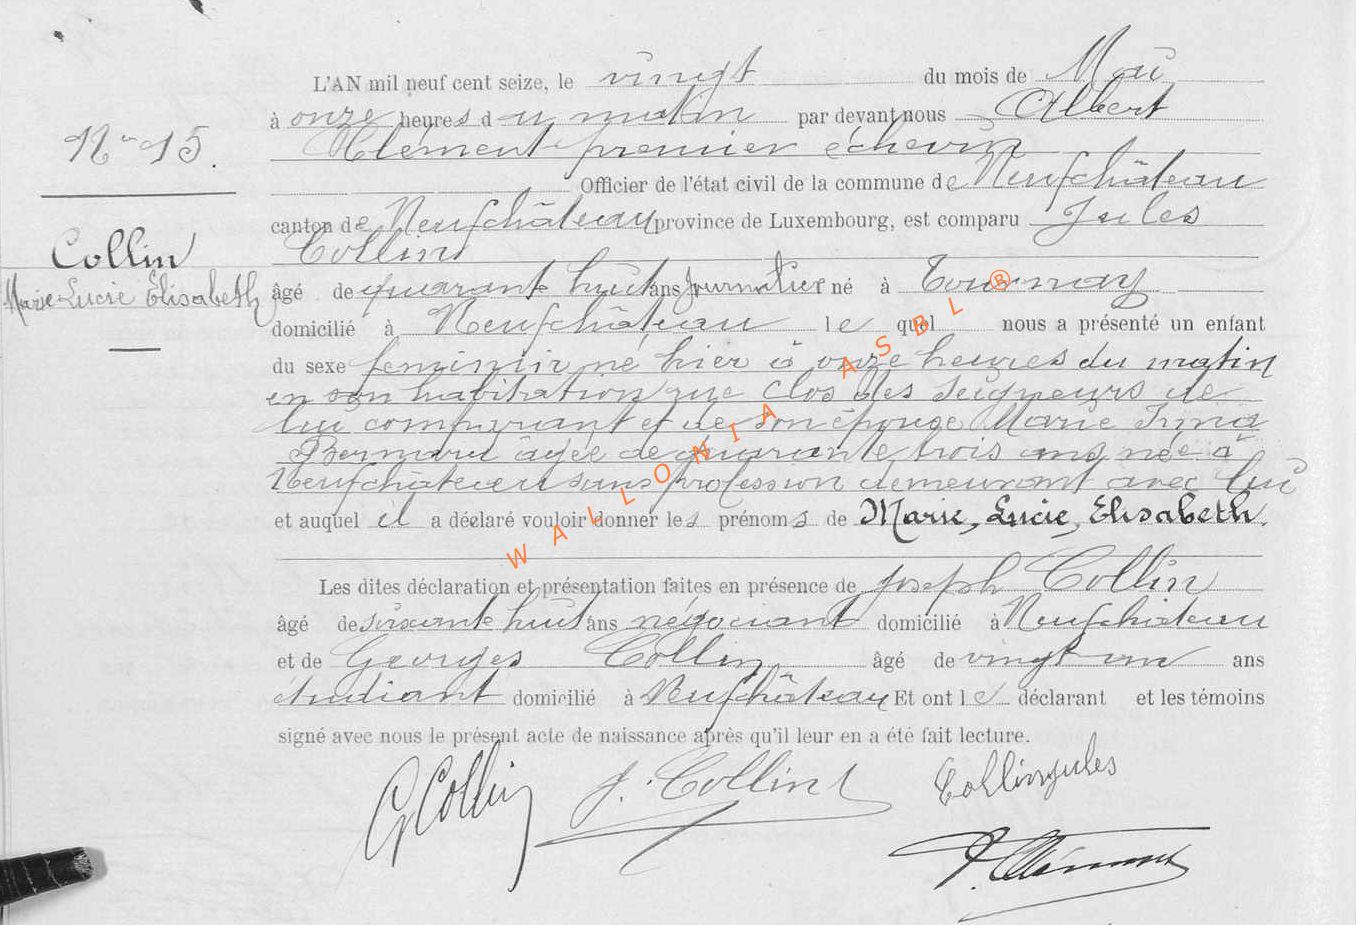 L'AN mil neuf cent seize, le vingt du mois de Mai
à onze heures du matin par devant nous Albert
Clément premier échevin
Officier de l'état civil de la commune de Neufchâteau
canton de Neufchâteau province de Luxembourg, est comparu Jules
Collin
âgé de quarante huit ans Journalier né à Tournay
domicilié à Neufchâteau lequel nous a présenté un enfant
du sexe feminin né hier à onze heures du matin
en son habitation rue Clos des Seigneurs de
lui comparant et de son épouse Marie Irma
Bernard âgée de quarante trois ans née à
Neufchâteau sans profession demeurant avec lui
et auquel il a déclaré vouloir donner les prénoms de Marie, Lucie, Elisabeth.
Les dites déclaration et présentation faites en présence de Joseph Collin
âgé de soixante huit ans négociant domicilié à Neufchâteau
et de Georges Collin âgé de vingt un ans
étudiant domicilié à Neufchâteau Et ont le déclarant et les témoins
signé avec nous le présent acte de naissance après qu'il leur en a été fait lecture.
N° 15.
Collin
Marie Lucie Elisabeth
G Collin
J. Collin
Collin jules
A. Clément
WALLONIA ASBL ®